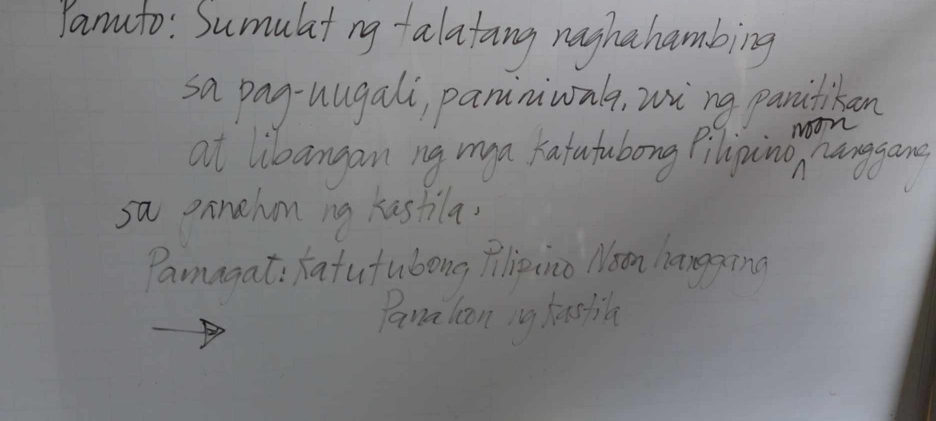 Panuto: Sumulat ng talatang naghahambing
sa pag-uugali, paniniwala, uri ng panitikan
at libangan ng mga katutubong Pilipino noon hanggang
sa panahon ng kastila.
Pamagat: Katutubong Pilipino Noon hanggang
Panahon ng Kastila